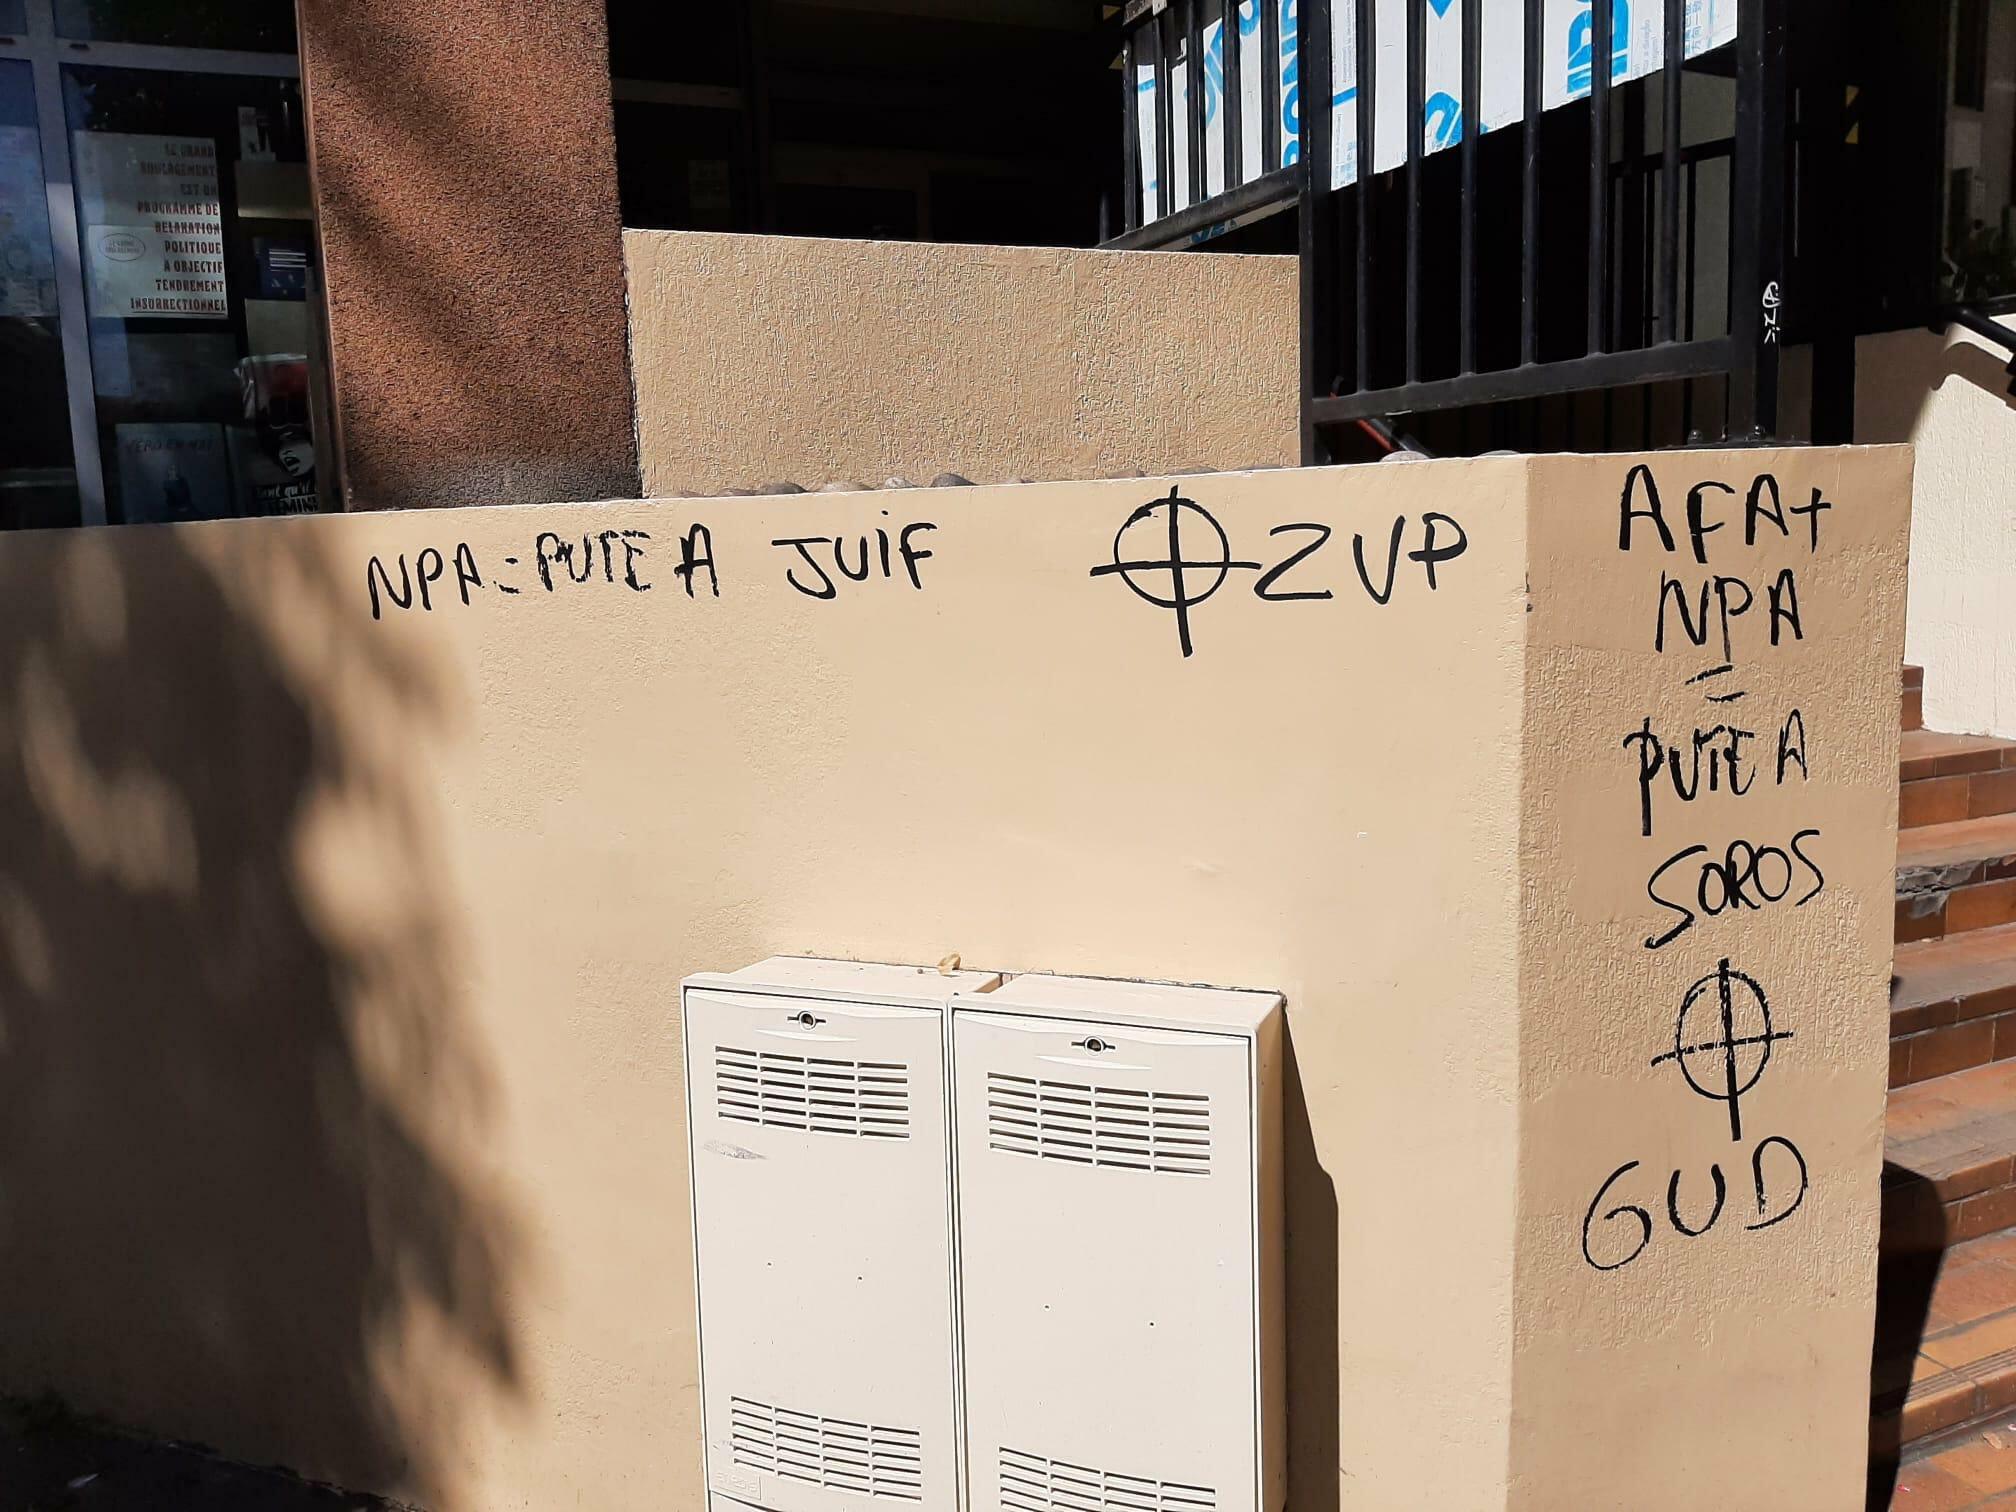 LE GRAND
SOULAGEMENT
EST UN
PROGRAMME DE
RELAXATION
POLITIQUE
A OBJECTIF
TENDREMENT
INSURRECTIONNEL
NPA = PUTE A JUIF
ZVP
AFA +
NPA
=
PUTE A
SOROS
GUD